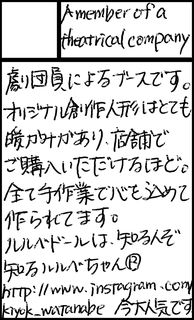 A member of a
theatrical company
劇団員によるブースです。
オリジナル創作人形はとても
暖かみがあり、店舗で
ご購入いただけるほど。
全て手作業で心を込めて
作られてます。
ルルベドールは、知る人ぞ
知るルルベちゃん
http://www.instagram.com/
kiyok_watanabe 今大人気です